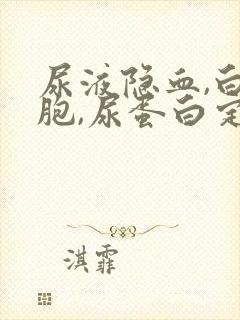 尿液隐血,白
胞,尿蛋白定
淇霏